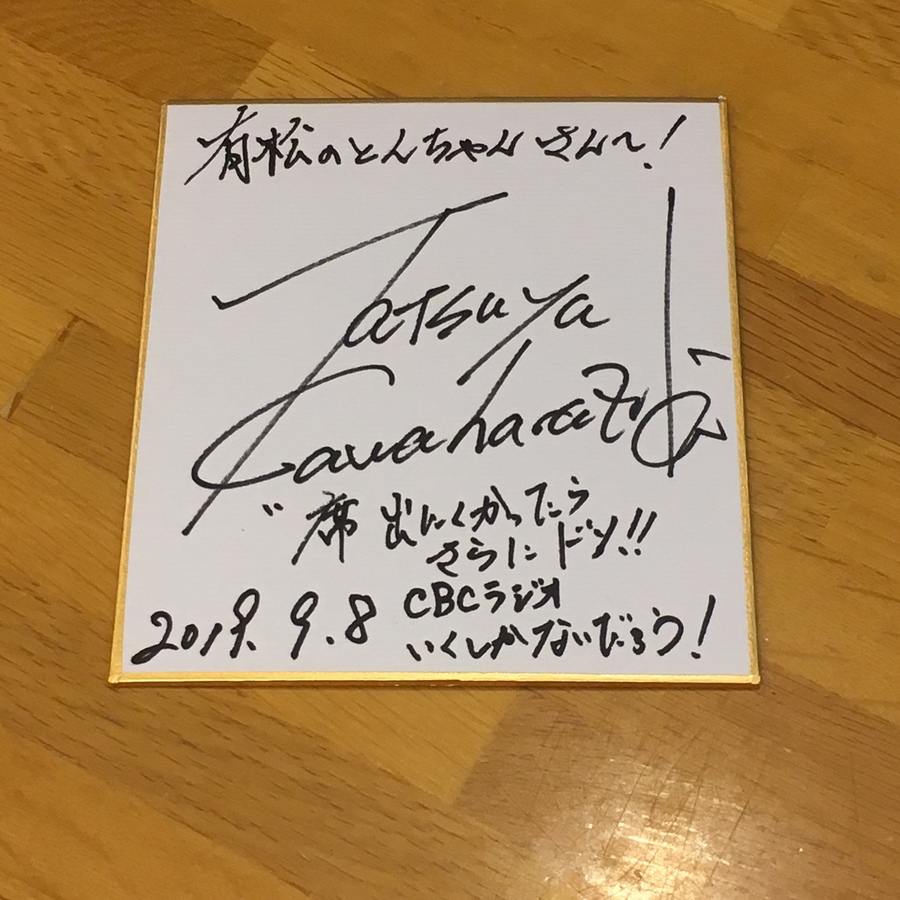 有松のとんちゃんさんへ!
Tatsuya
Kawaharazuka
〝席 出にくかったら
さらにドン!!
CBCラジオ
2019.9.8 いくしかないだろう!